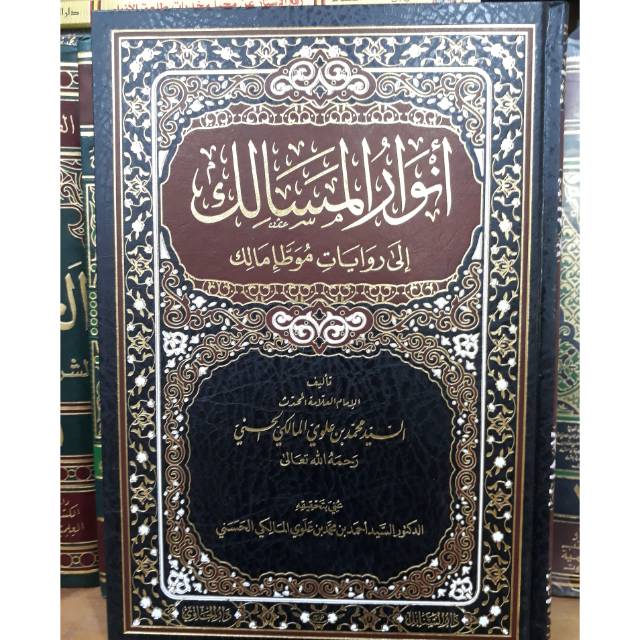 أنوار المسالك
إلى روايات موطإ مالك
تأليف
الإمام العلامة المحدث
السيد محمد بن علوي المالكي الحسني
رحمه الله تعالى
عني بتحقيقه
الدكتور السيد أحمد بن محمد بن علوي المالكي الحسني
دار السنابل